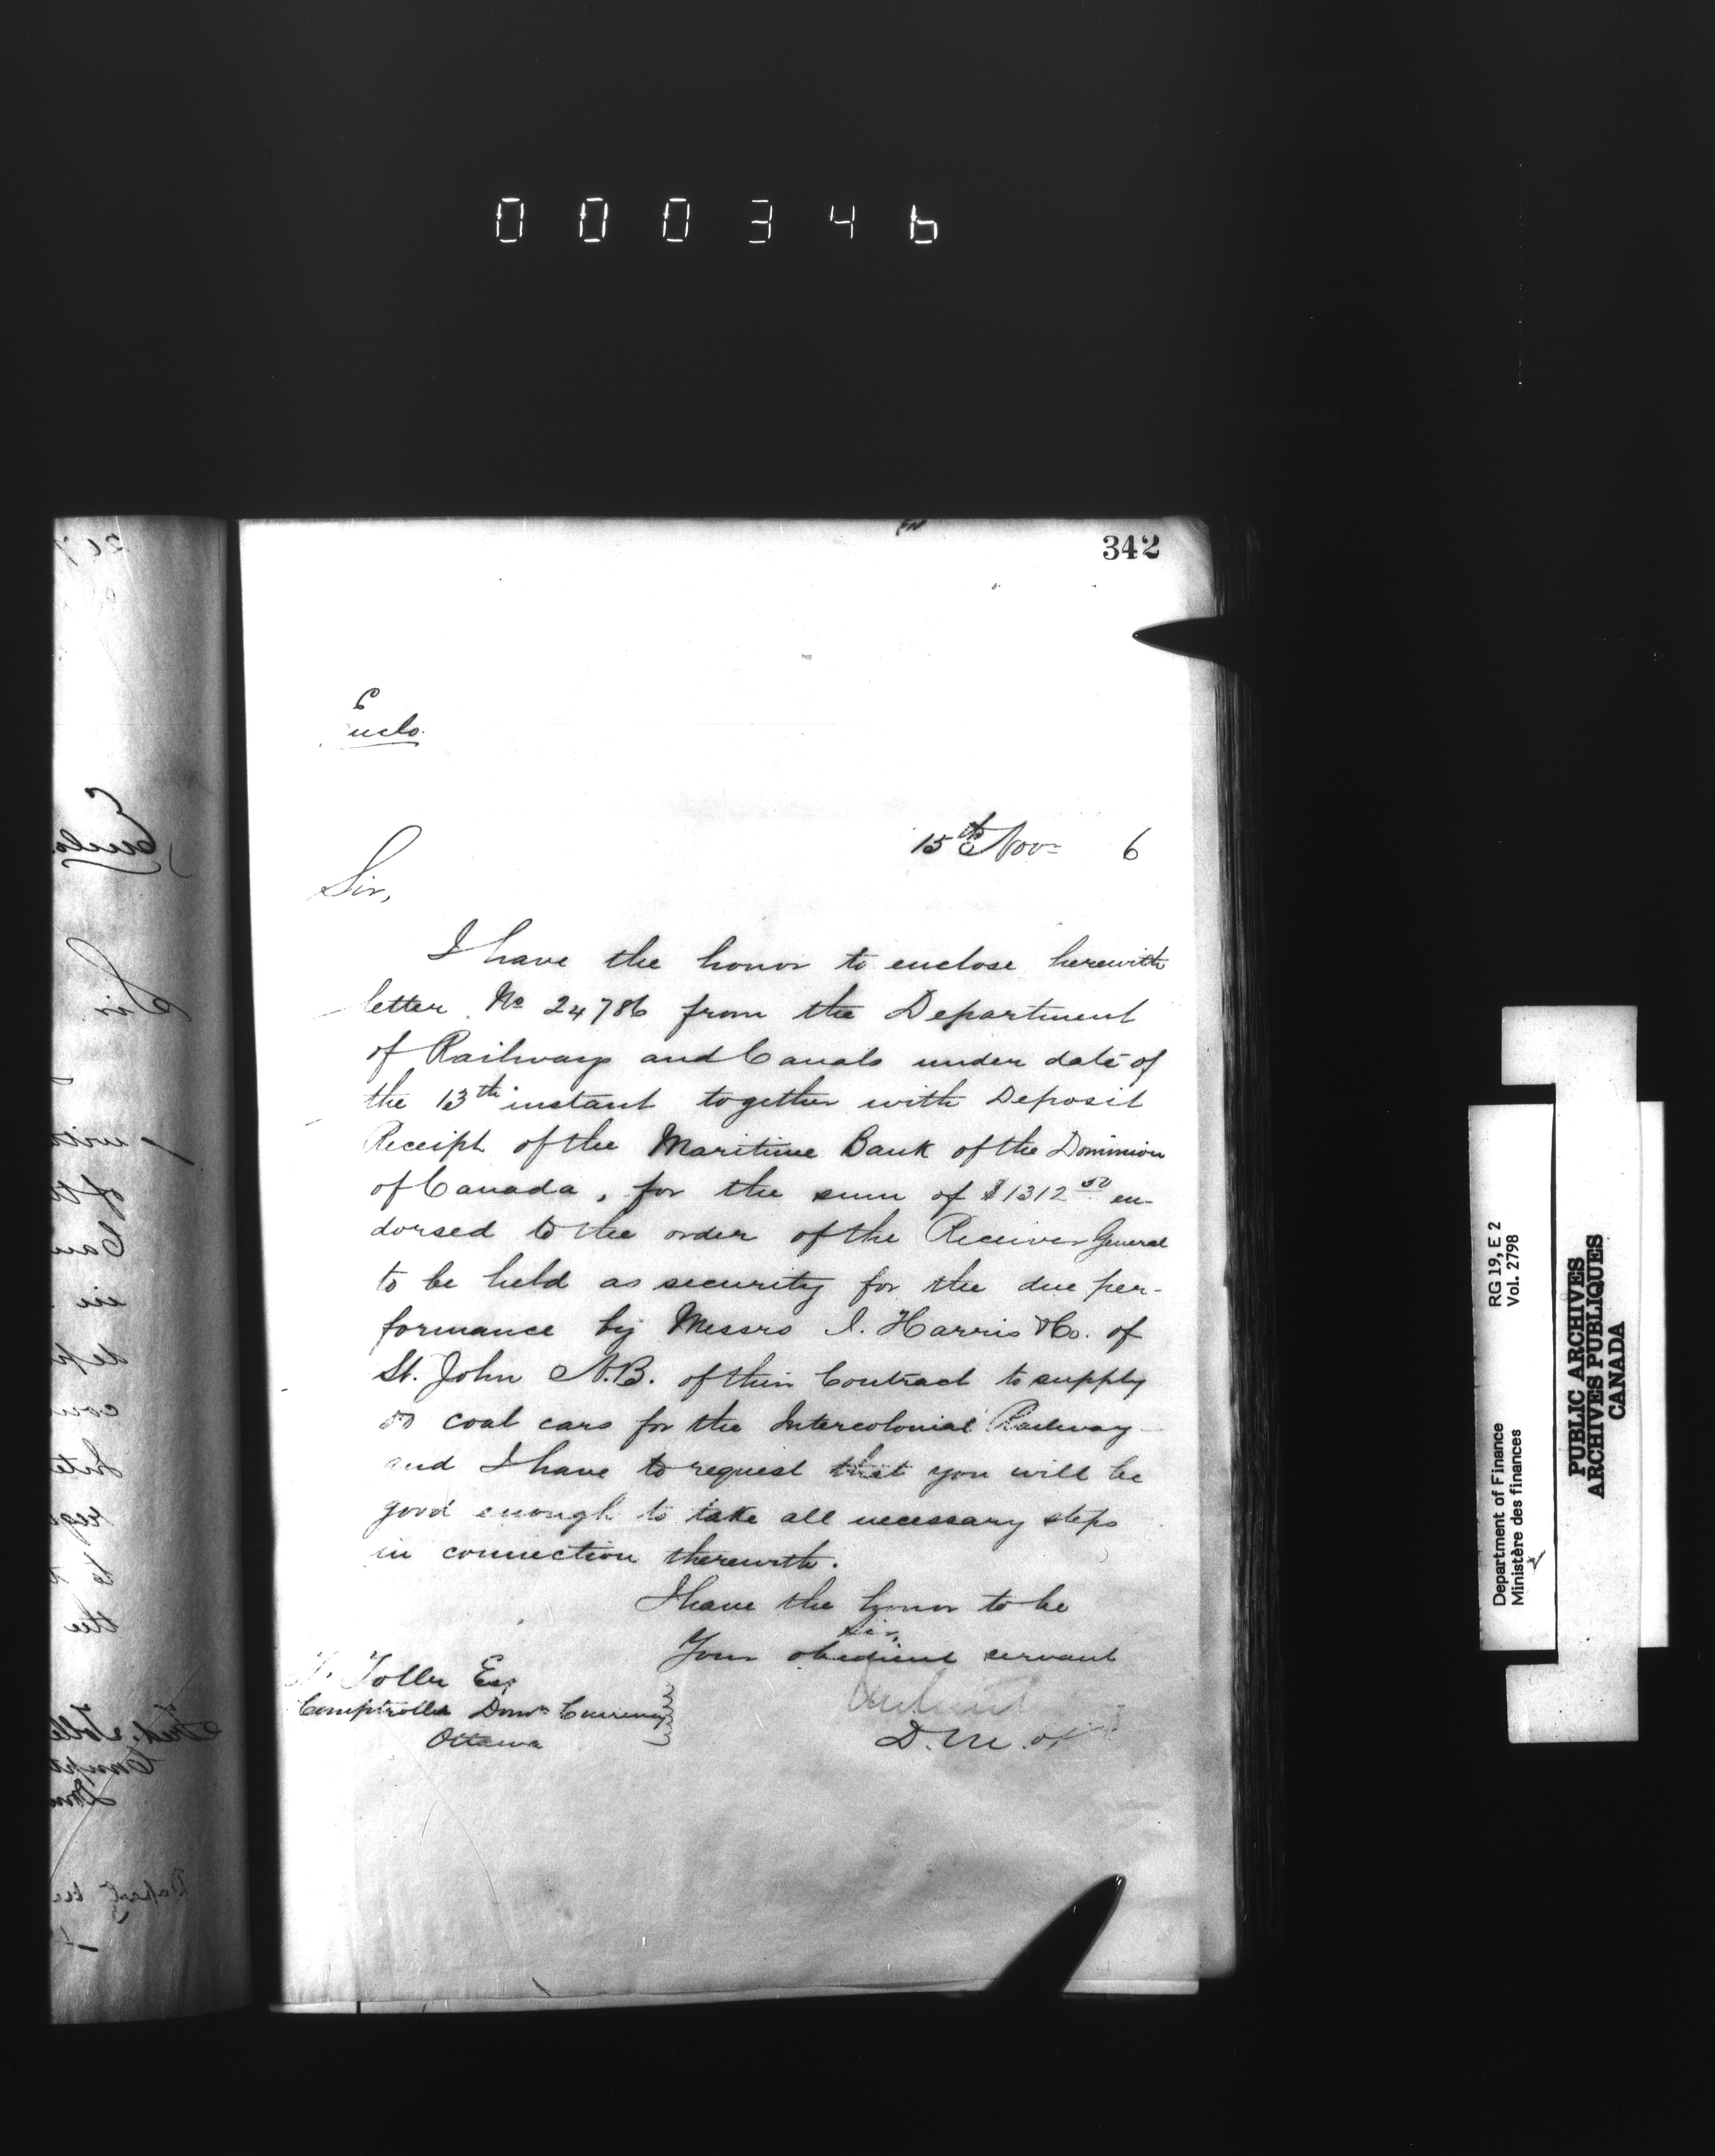 000346
342
Enclo.
15th Nov= 6
Sir,
I have the honor to enclose herewith
letter No 24786 from the Department
of Railways and Canals under date of
the 13th instant together with Deposit
Receipt of the Maritime Bank of the Dominion
of Canada, for the sum of $1312 50 en-
dorsed to the order of the Receiver General
to be held as security for the due per-
formance by Messrs I. Harris & Co. of
St. John N.B. of their Contract to supply
50 coal cars for the Intercolonial Railway
and I have to request that you will be
good enough to take all necessary steps
in connection therewith.
I have the honor to be
Sir,
Your obedient servant
D.M. of
Toller Esq
Comptroller Domn Currency
Ottawa
Department of Finance RG 19, E 2
Ministère des finances Vol. 2798
PUBLIC ARCHIVES
ARCHIVES PUBLIQUES
CANADA